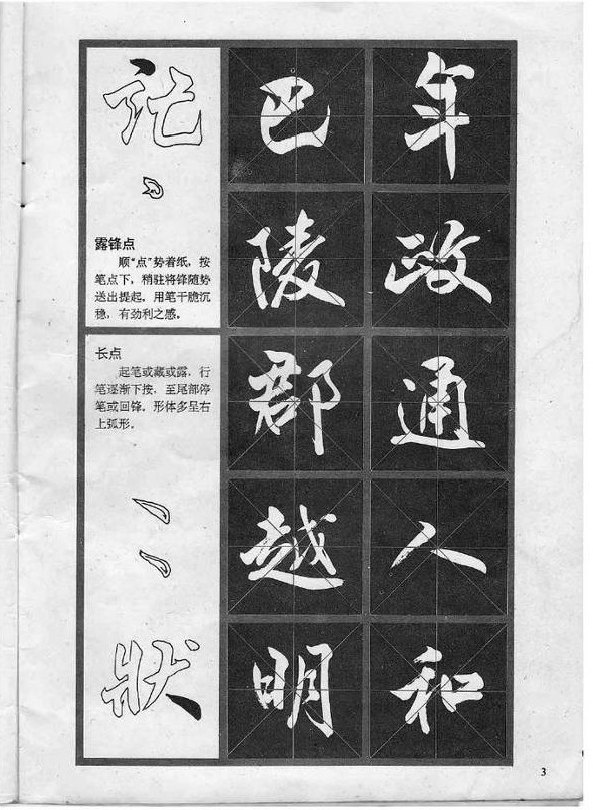 露锋点
顺“点”势着纸，按
笔点下，稍驻将锋随势
送出提起。用笔干脆沉
稳，有劲利之感。
长点
起笔或藏或露，行
笔逐渐下按，至尾部停
笔或回锋。形体多呈右
上弧形。
狀
巴陵郡越明
年政通人和
3